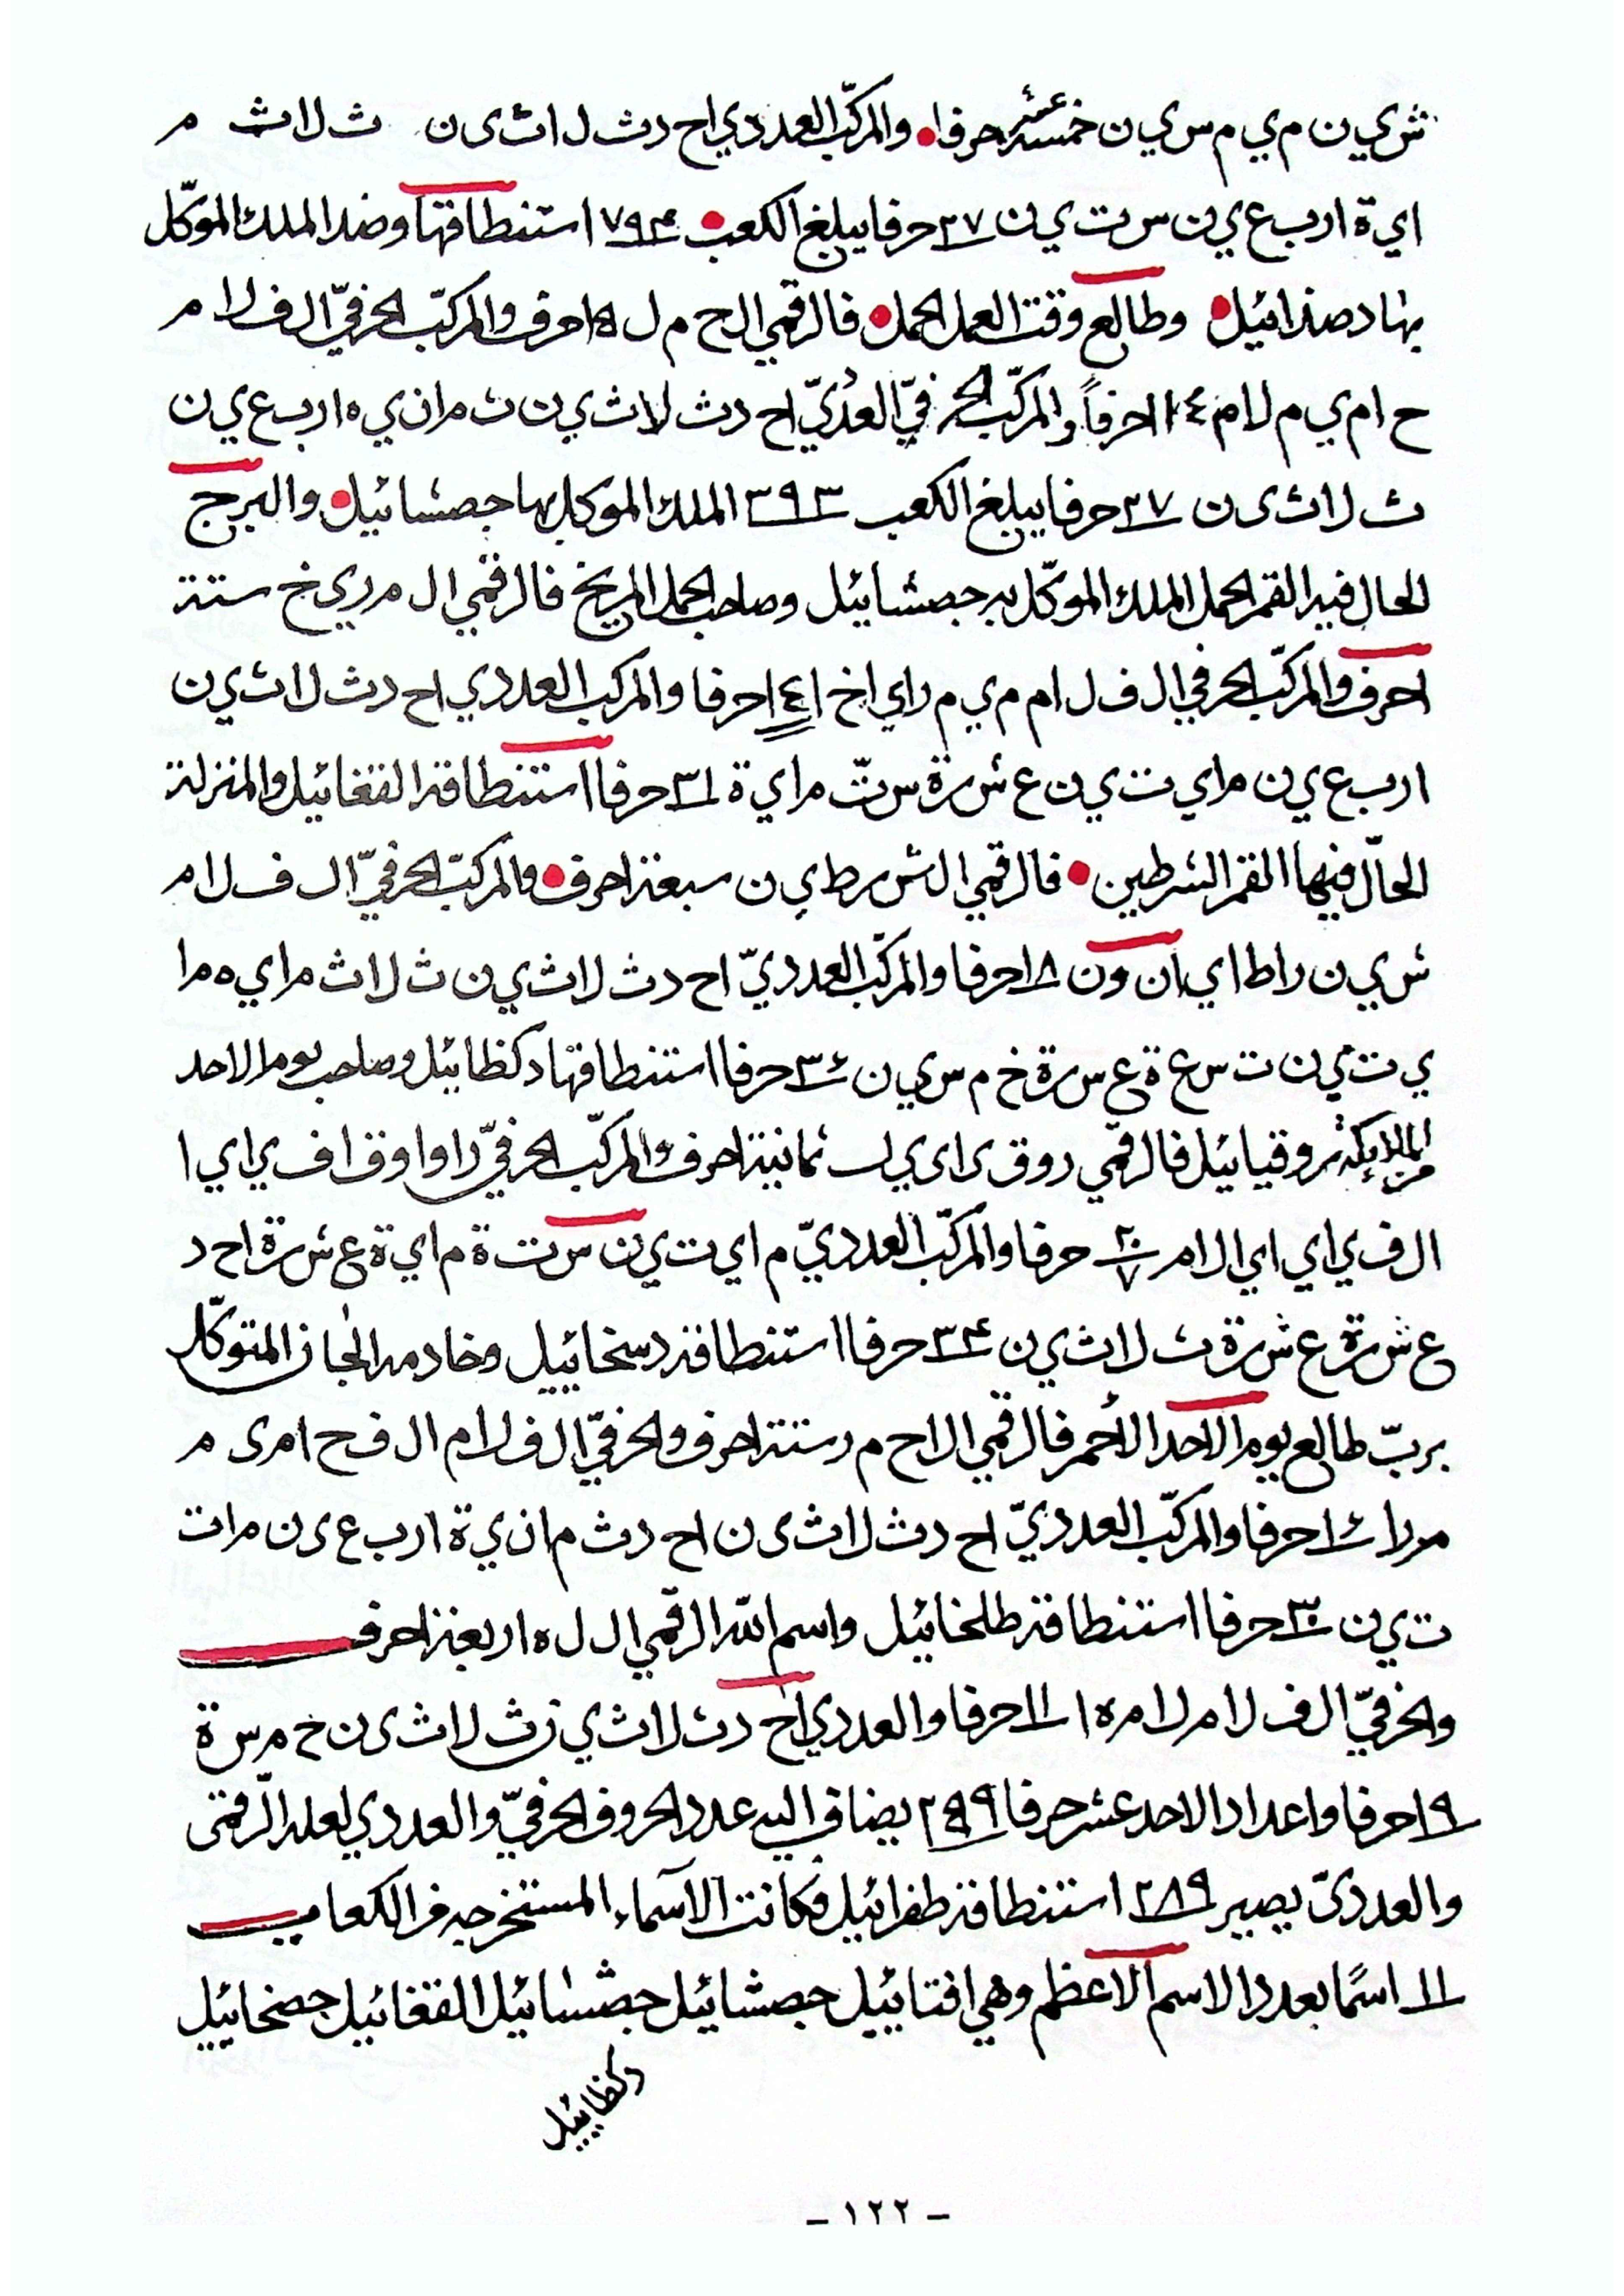 ش ي ن م ي م س ي ن خمسة عشر حرفا والمركّب العددي اح د ث ل ا ث ى ن ث ل ا ث م
ا ي ة ا ر ب ع ي ن س ت ي ن ٣٧ حرفا يبلغ الكعب ٧٩٣ استنطاقها وضد الملك الموكّل
بها دصذائيل وطالع وقت العمل الحمل فالرقمي ا ل ح م ل ٥ احرف والمركّب الحرفيّ ا ل ف ل ا م
ح ا م ي م ل ا م ١٤ حرفاً والمركّب الحرفيّ العدديّ ا ح د ث ل ا ث ي ن ث م ا ن ي ه ا ر ب ع ي ن
ث ل ا ث ى ن ٣٧ حرفا يبلغ الكعب ٣٩٣ الملك الموكل بها جصشائيل والبرج
الحال فيه القمر الحمل الملك الموكّل به جصشائيل وصاحب الحمل المريخ فالرقمي ا ل م ر ي خ ستة
احرف والمركّب الحرفي ا ل ف ل ا م م ي م ر ا ي ا خ ا ١٤ حرفا والمركب العددي ا ح د ث ل ا ث ي ن
ا ر ب ع ي ن م ا ي ت ي ن ع ش ر ة س تّ م ا ي ة ٣١ حرفا استنطاقه الفغائيل والمنزلة
الحالّ فيها القمر الشرطين فالرقمي ا ل ش ر ط ي ن سبعة احرف والمركّب الحرفيّ ا ل ف ل ا م
ش ي ن ر ا ط ا ي ا ن و ن ١٨ حرفا والمركّب العدديّ ا ح د ث ل ا ث ي ن ث ل ا ث م ا ي ه م ا
ي ت ي ن ت س ع ة ع س ر ة خ م س ي ن ٣٤ حرفا استنطاقها دكظائيل وصاحب يوم الاحد
من الملايكة روقيائيل فالرقمي ر و ق ى ا ى ي ل ثمانية احرف والمركّب الحرفيّ ر ا و ا و ق ا ف ي ا ي ا
ا ل ف ي ا ي ا ي ا ل ا م ٢٠/٧ حرفا والمركّب العدديّ م ا ي ت ي ن س ت ة م ا ي ة ع ش ر ة ا ح د
ع ش ر ة ع ش ر ة ث ل ا ث ي ن ٣٣٤ حرفا استنطاقه دسخاييل وخادمه الجان المتوكّل
بربّ طالع يوم الاحد الأحمر فالرقمي ا ل ا ح م ر ستة احرف والحرفيّ ا ل ف ل ا م ا ل ف ح ا م ى م
م ر ا ١٤ حرفا والمركّب العدديّ ا ح د ث ل ا ث ى ن ا ح د ث م ا ن ي ة ا ر ب ع ى ن م ا ت
ت ي ن ٣٠ حرفا استنطاقه طلخائيل واسم اللّه الرقمي ا ل ل ه اربعة احرف
والحرفيّ ا ل ف ل ا م ل ا م ه ا ١١ حرفا والعددي ا ح د ث ل ا ث ي ن ث ل ا ث ى ن خ م س ة
١٩ حرفا واعداد الاحد عشر حرفا ٢٥٩ يضاف اليه عدد الحروف الحرفيّ والعددي لعله الرقمى
والعددىّ يصير ٢٨٩ استنطاقه طفرائيل فكانت الآسماء المستخرجه من الكعاب
١١ اسمًا بعدد الاسم الاعظم وهي افتاييل جصشائيل جصشائيل الفغائيل جصخاييل
دكظاييل
- ١٢٢ -